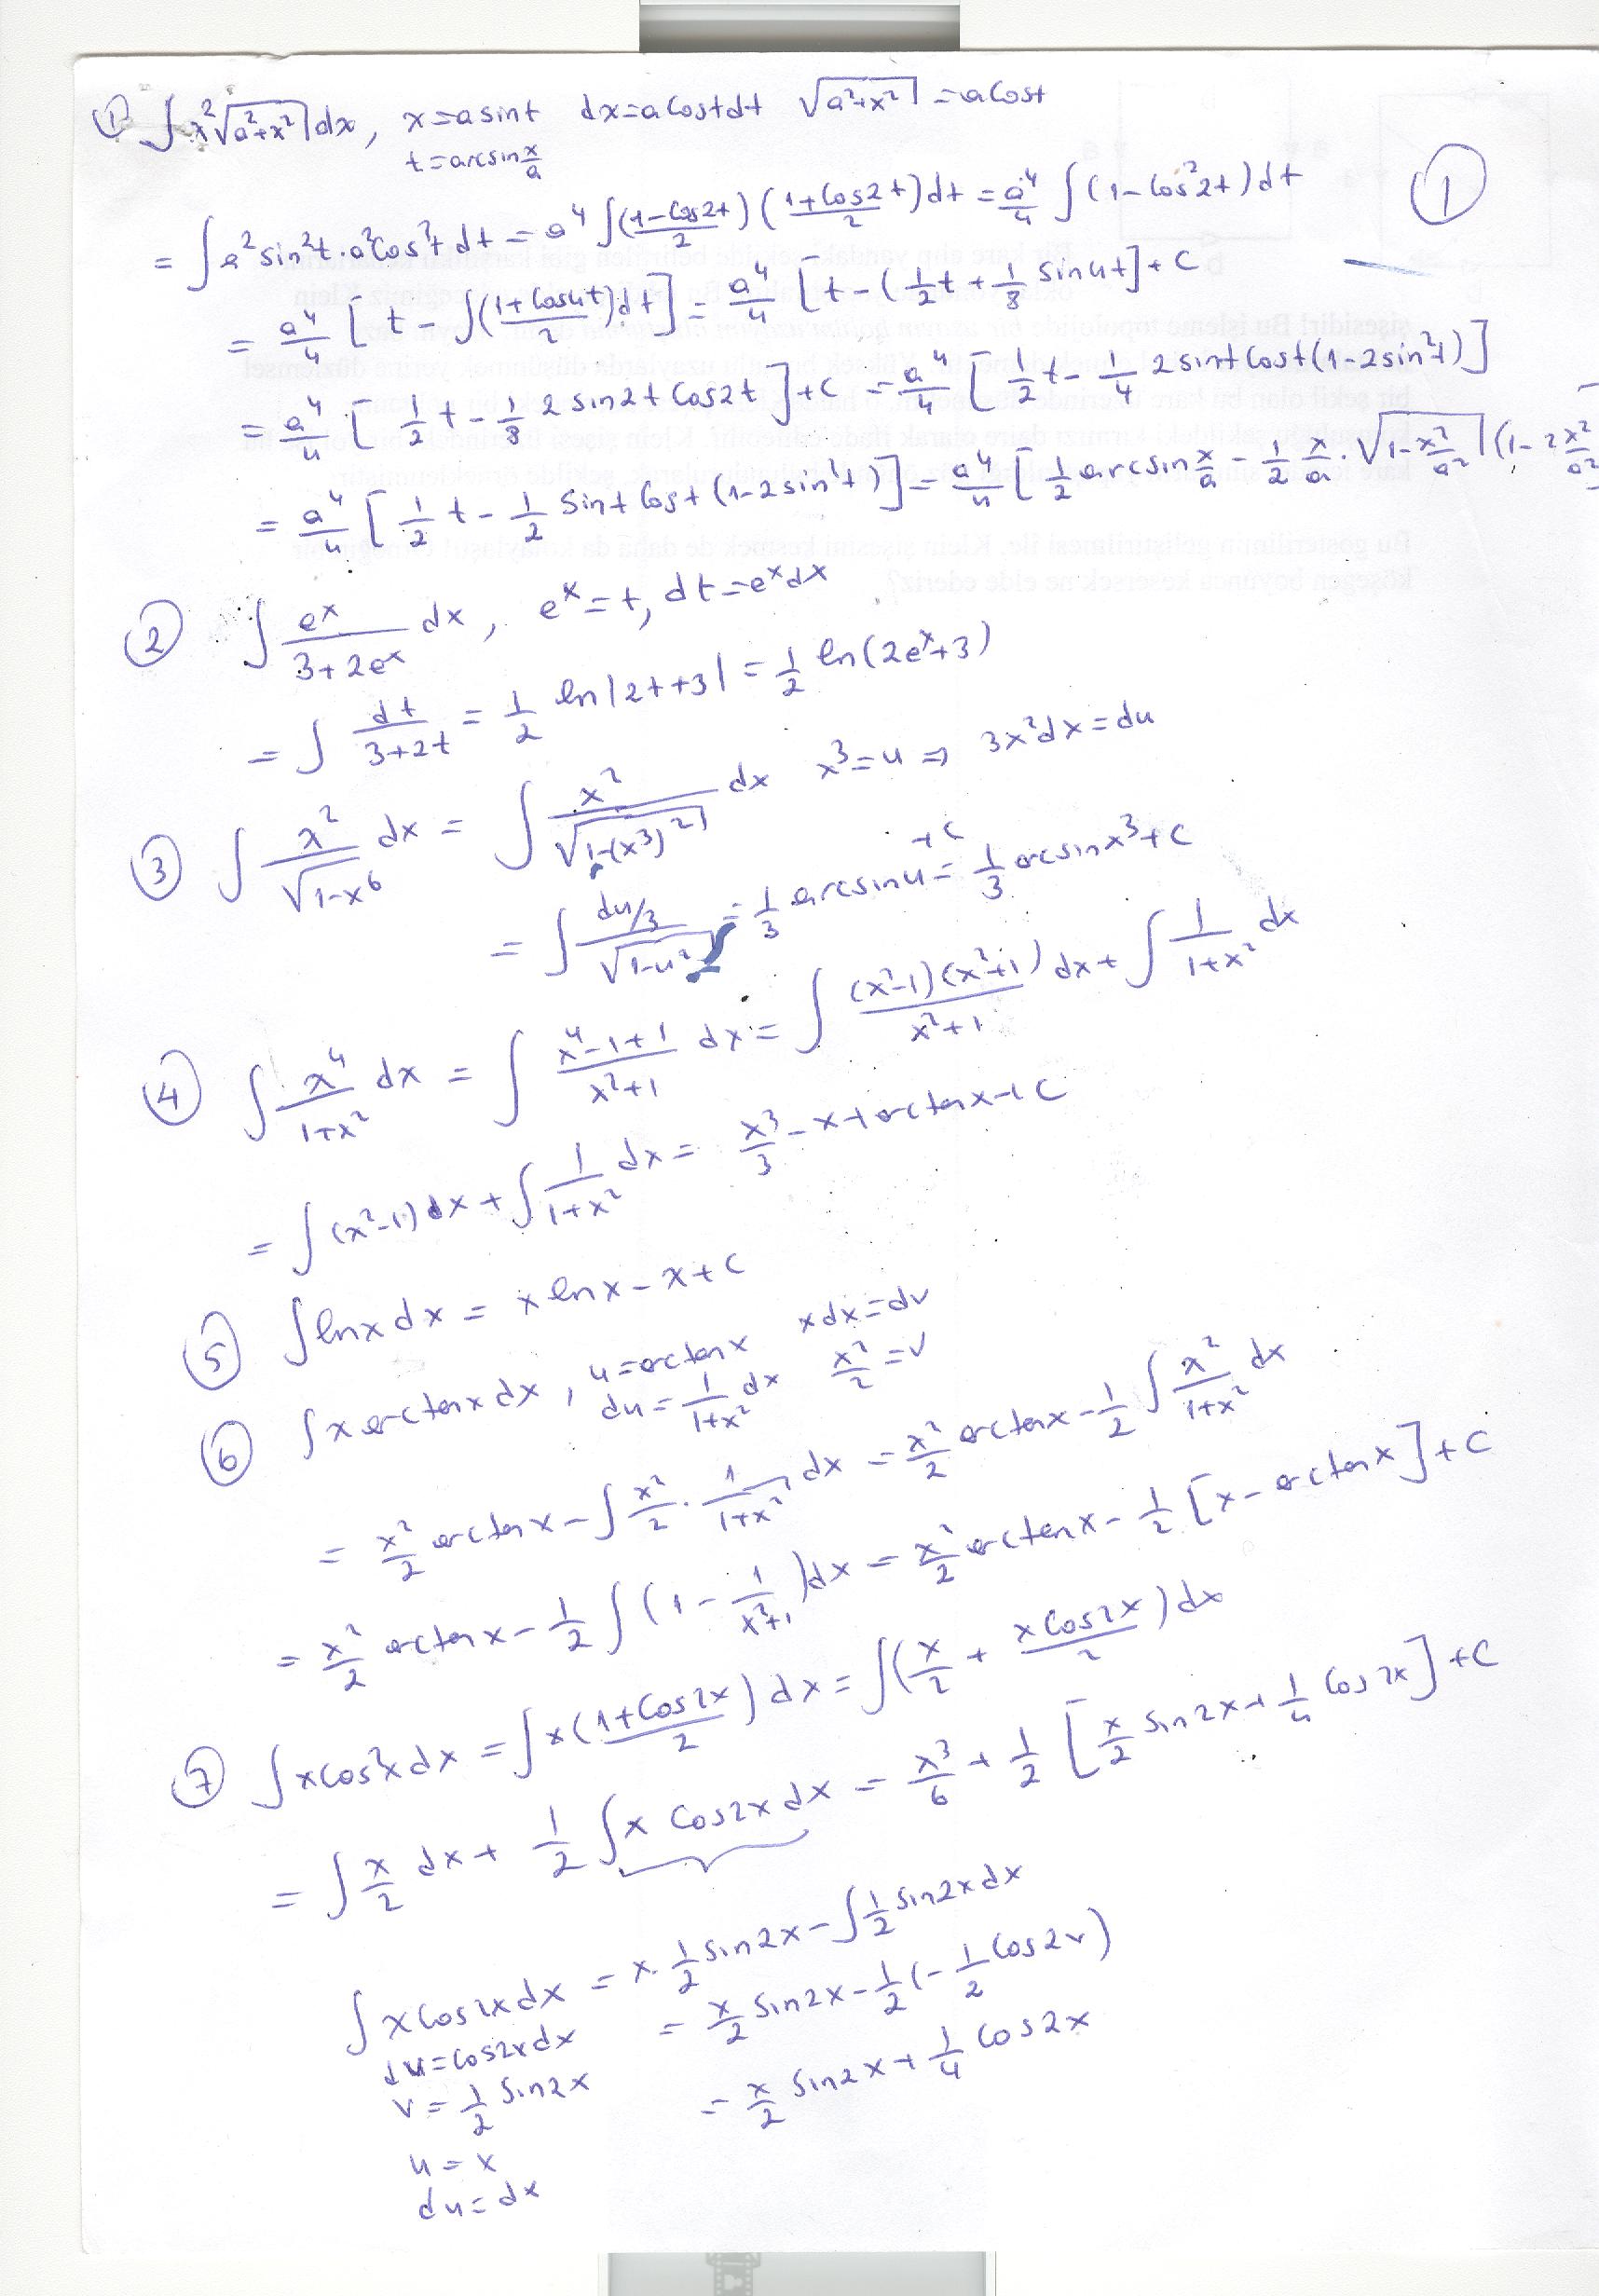 ① ∫x²√(a²+x²) dx, x=asint dx=acostdt √(a²+x²)=acost
t=arcsin x/a
①
= ∫a²sin²t·a²cos²t dt = a⁴ ∫((1-Cos2t)/2)((1+Cos2t)/2)dt = a⁴/4 ∫(1-Cos²2t)dt
= a⁴/4 [t - ∫((1+Cos4t)/2)dt] = a⁴/4 [t-(1/2 t + 1/8 sin4t]+C
= a⁴/4 [1/2 t - 1/8 2 sin2t Cos2t]+C = a⁴/4 [1/2 t - 1/4 2sint Cost(1-2sin²t)]
= a⁴/4 [1/2 t - 1/2 Sint Cost (1-2sin²t)] = a⁴/4 [1/2 arcsin x/a - 1/2 x/a · √(1-x²/a²) (1-2x²/a²
② ∫ eˣ/(3+2eˣ) dx, eˣ=t, dt=eˣdx
= ∫ dt/(3+2t) = 1/2 ln|2t+3| = 1/2 ln(2eˣ+3)
③ ∫ x²/√(1-x⁶) dx = ∫ x²/√(1-(x³)²) dx x³=u ⇒ 3x²dx=du
= ∫ (du/3)/√(1-u²) = 1/3 arcsinu +C = 1/3 arcsinx³+C
④ ∫ x⁴/(1+x²) dx = ∫ (x⁴-1+1)/(x²+1) dx = ∫ (x²-1)(x²+1)/(x²+1) dx + ∫ 1/(1+x²) dx
= ∫(x²-1)dx + ∫ 1/(1+x²) dx = x³/3 - x + arctanx + C
⑤ ∫lnxdx = xlnx-x+C
⑥ ∫xarctanxdx, u=arctanx xdx=dv
du = 1/(1+x²) dx x²/2=v
= x²/2 arctanx - ∫ x²/2 · 1/(1+x²) dx = x²/2 arctanx - 1/2 ∫ x²/(1+x²) dx
= x²/2 arctanx - 1/2 ∫(1 - 1/(x²+1))dx = x²/2 arctanx - 1/2 [x-arctanx]+C
⑦ ∫xcos²xdx = ∫x((1+Cos2x)/2)dx = ∫(x/2 + xCos2x/2)dx
= ∫ x/2 dx + 1/2 ∫x Cos2xdx = x³/6 + 1/2 [x/2 sin2x + 1/4 Cos2x]+C
∫xCos2xdx = x·1/2 sin2x - ∫1/2 sin2xdx
du=cos2xdx = x/2 sin2x - 1/2(-1/2 Cos2x)
v = 1/2 Sin2x = x/2 sin2x + 1/4 Cos2x
u=x
du=dx